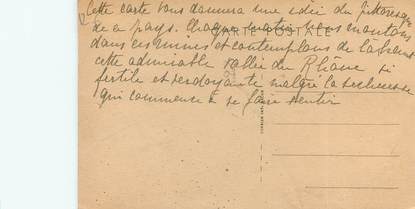 Cette carte vous donnera une idée du pittoresque
de ce pays. Chaque matin nous montons
CARTE POSTALE
dans ces ruines et contemplons de là-haut
cette admirable vallée du Rhône si
fertile et verdoyante malgré la sécheresse
qui commence à se faire sentir